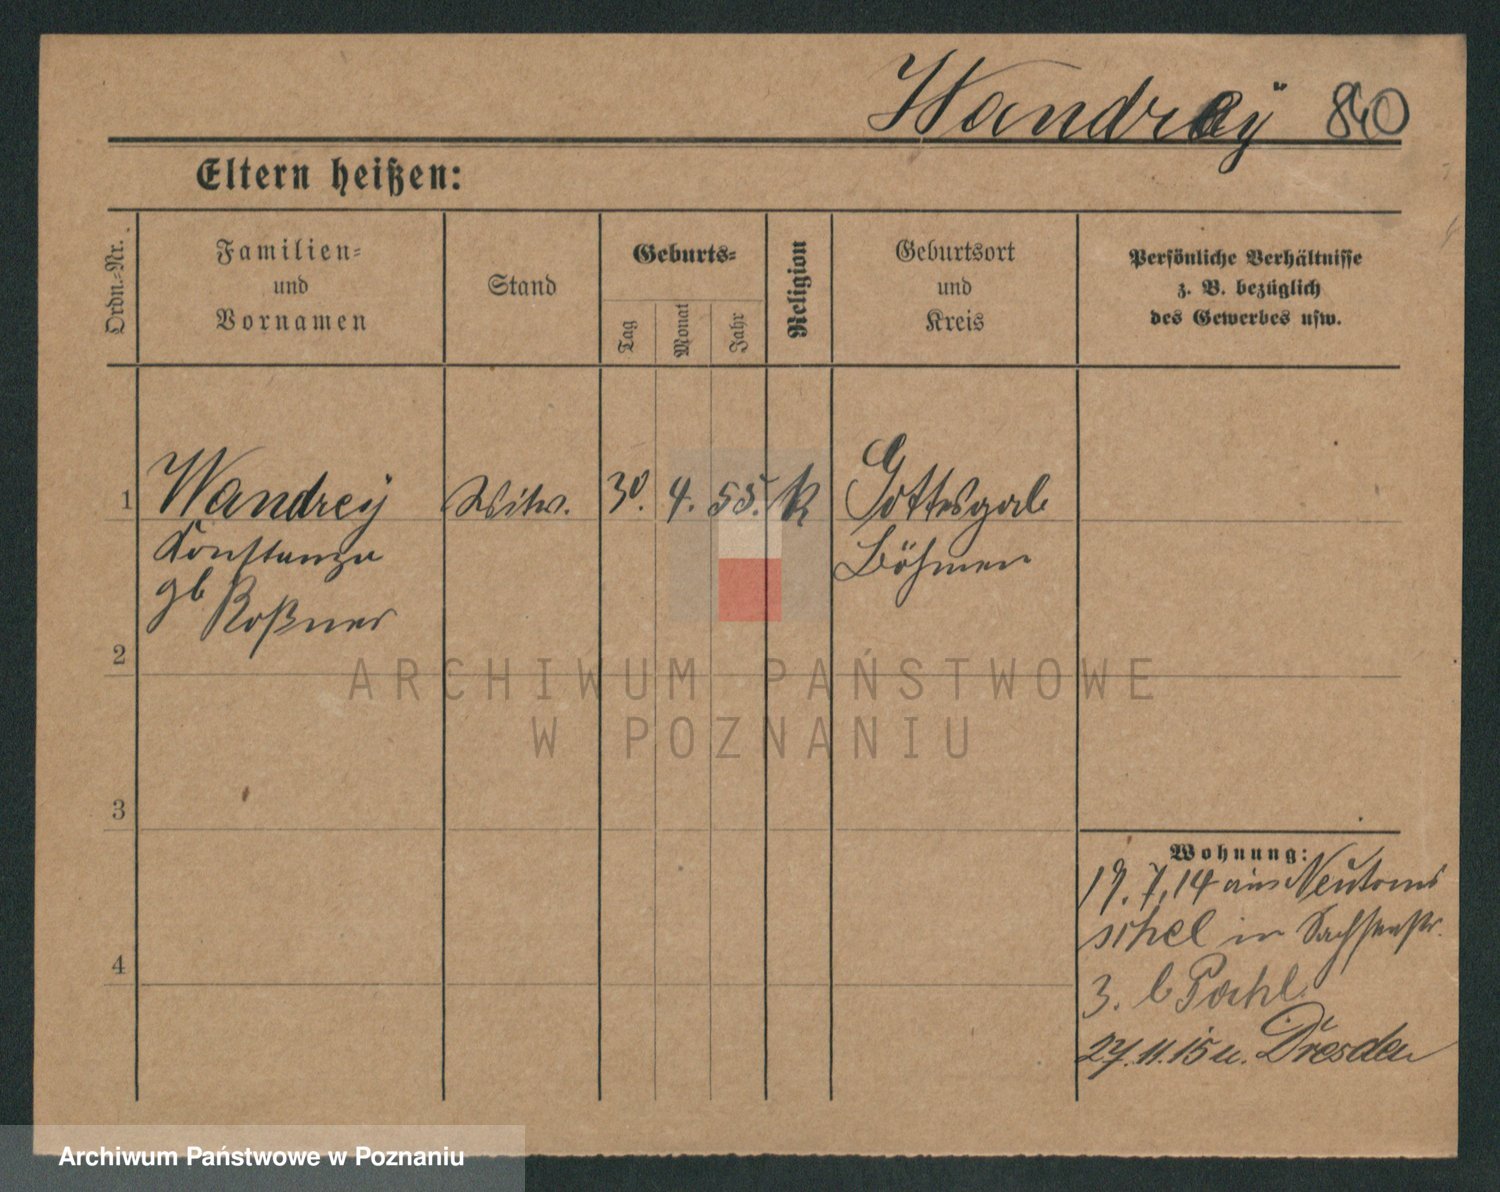 Wandreÿ 840
Eltern heißen:
Ordn.-Nr.
Familien-
und
Vornamen
Stand
Geburts-
Tag
Monat
Jahr
Religion
Geburtsort
und
Kreis
Persönliche Verhältnisse
z. B. bezüglich
des Gewerbes usw.
1 Wandreÿ Witw. 30. 4. 55. K Gottesgab
Konstanze Böhmen
gb Roßner
2
3
4
Wohnung:
19. 7. 14 aus Neutomi
schel in Sachsenstr.
3. b Pohl.
27. 11. 15 n. Dresden
ARCHIWUM PAŃSTWOWE
W POZNANIU
Archiwum Państwowe w Poznaniu